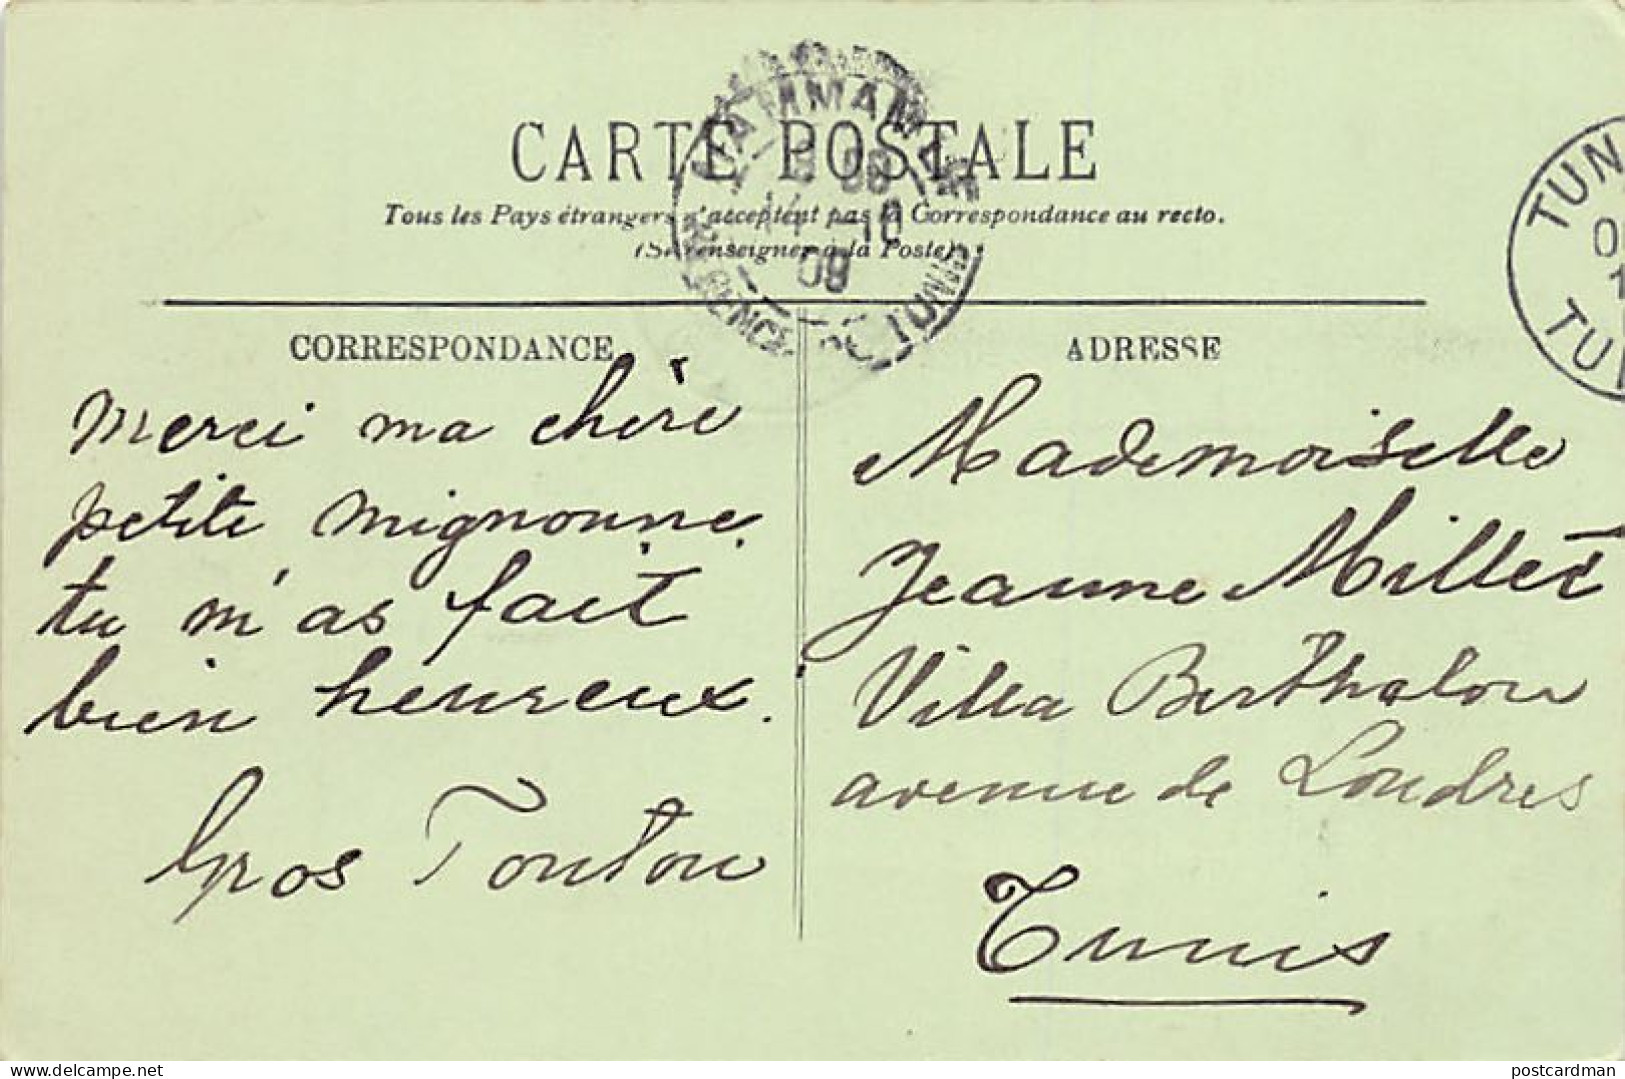 CARTE POSTALE
Tous les Pays étrangers n'acceptent pas la Correspondance au recto.
(Se renseigner à la Poste)
HAMMAM-LIF
14 -10
09
TUNISIE
TUN
TU
CORRESPONDANCE
Merci ma chère
petite mignonne
tu m'as fait
bien heureux.
Gros Tonton
ADRESSE
Mademoiselle
Jeanne Millet
Villa Berthelon
avenue de Londres
Tunis
delcampe.net
postcardman